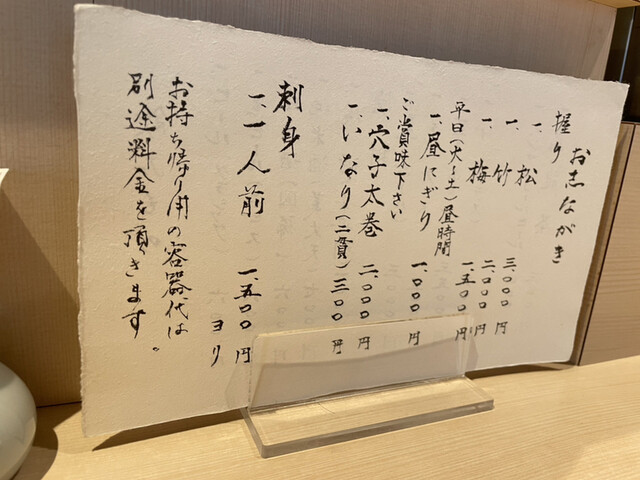 おしながき
握り
一、松 三、〇〇〇円
一、竹 二、〇〇〇円
一、梅 一、五〇〇円
平日(火〜土)昼時間
一、昼にぎり 一、〇〇〇円
ご賞味下さい
一、穴子太巻 二、〇〇〇円
一、いなり(二貫)三〇〇円
刺身
一、一人前 一、五〇〇円ヨリ
お持ち帰り用の容器代は
別途料金を頂きます。